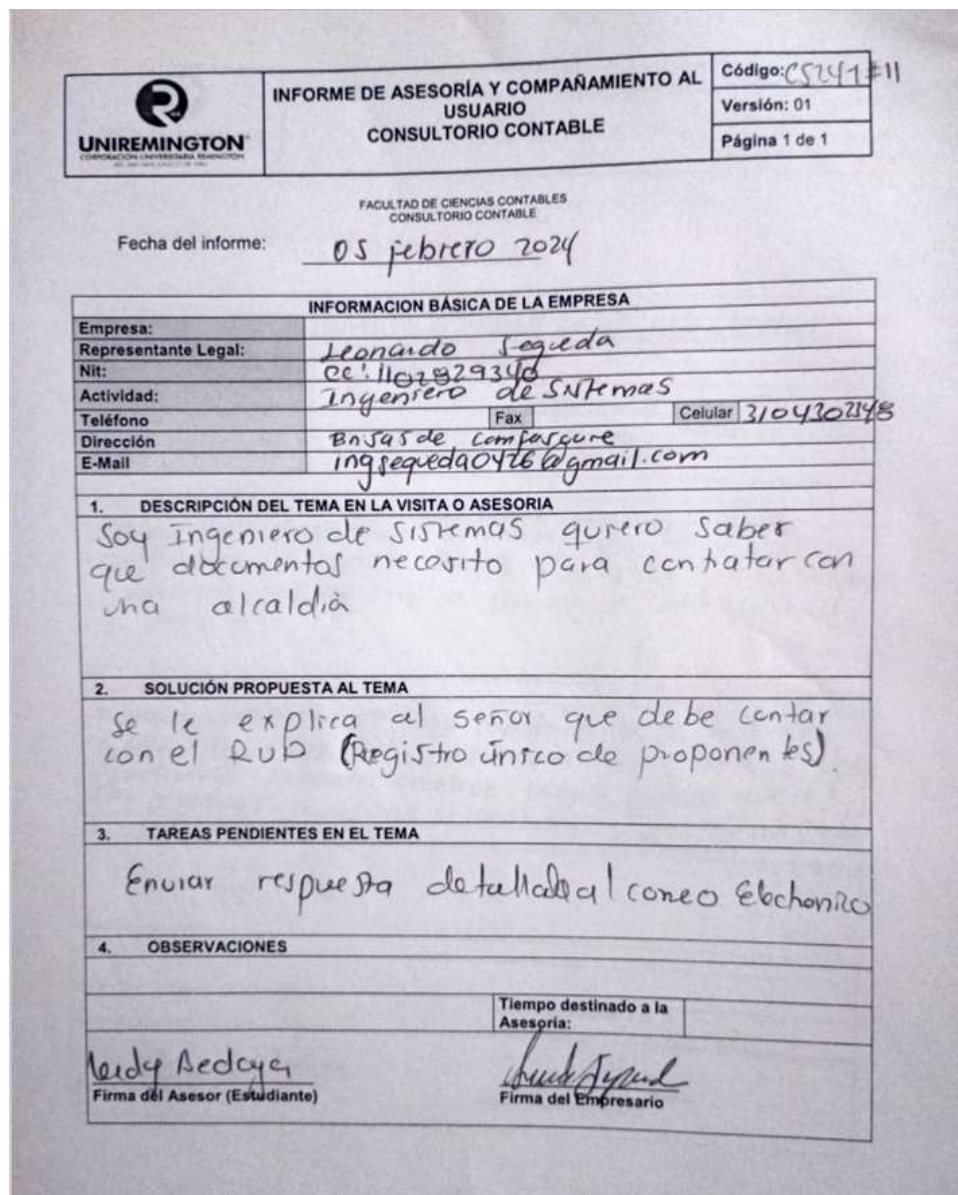 UNIREMINGTON
CORPORACIÓN UNIVERSITARIA REMINGTON
INFORME DE ASESORÍA Y COMPAÑAMIENTO AL
USUARIO
CONSULTORIO CONTABLE
Código: CS241#11
Versión: 01
Página 1 de 1
FACULTAD DE CIENCIAS CONTABLES
CONSULTORIO CONTABLE
Fecha del informe: 05 febrero 2024
INFORMACION BÁSICA DE LA EMPRESA
Empresa:
Representante Legal: Leonardo Segueda
Nit: CC: 1102829340
Actividad: Ingeniero de Sistemas
Teléfono Fax Celular 3104302148
Dirección de
E-Mail ingsequeda0426@gmail.com
1. DESCRIPCIÓN DEL TEMA EN LA VISITA O ASESORIA
Soy Ingeniero de Sistemas quiero saber
que documentos necesito para contratar con
una alcaldia
2. SOLUCIÓN PROPUESTA AL TEMA
Se le explica al señor que debe contar
con el RUP (Registro único de proponentes).
3. TAREAS PENDIENTES EN EL TEMA
Enviar respuesta detallada al correo Electronico
4. OBSERVACIONES
Tiempo destinado a la
Asesoría:
Leidy Bedoya
Firma del Asesor (Estudiante)
Firma del Empresario